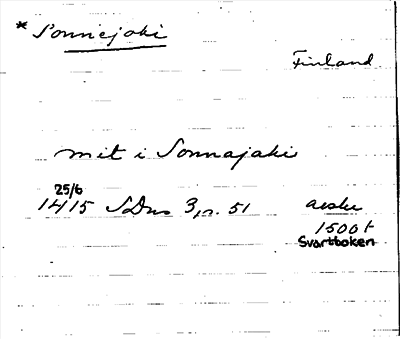 * Sonnejoki
Finland
mit i Sonnajaki
25/6
1415 SDns 3, s. 51
1500 t
Svartboken